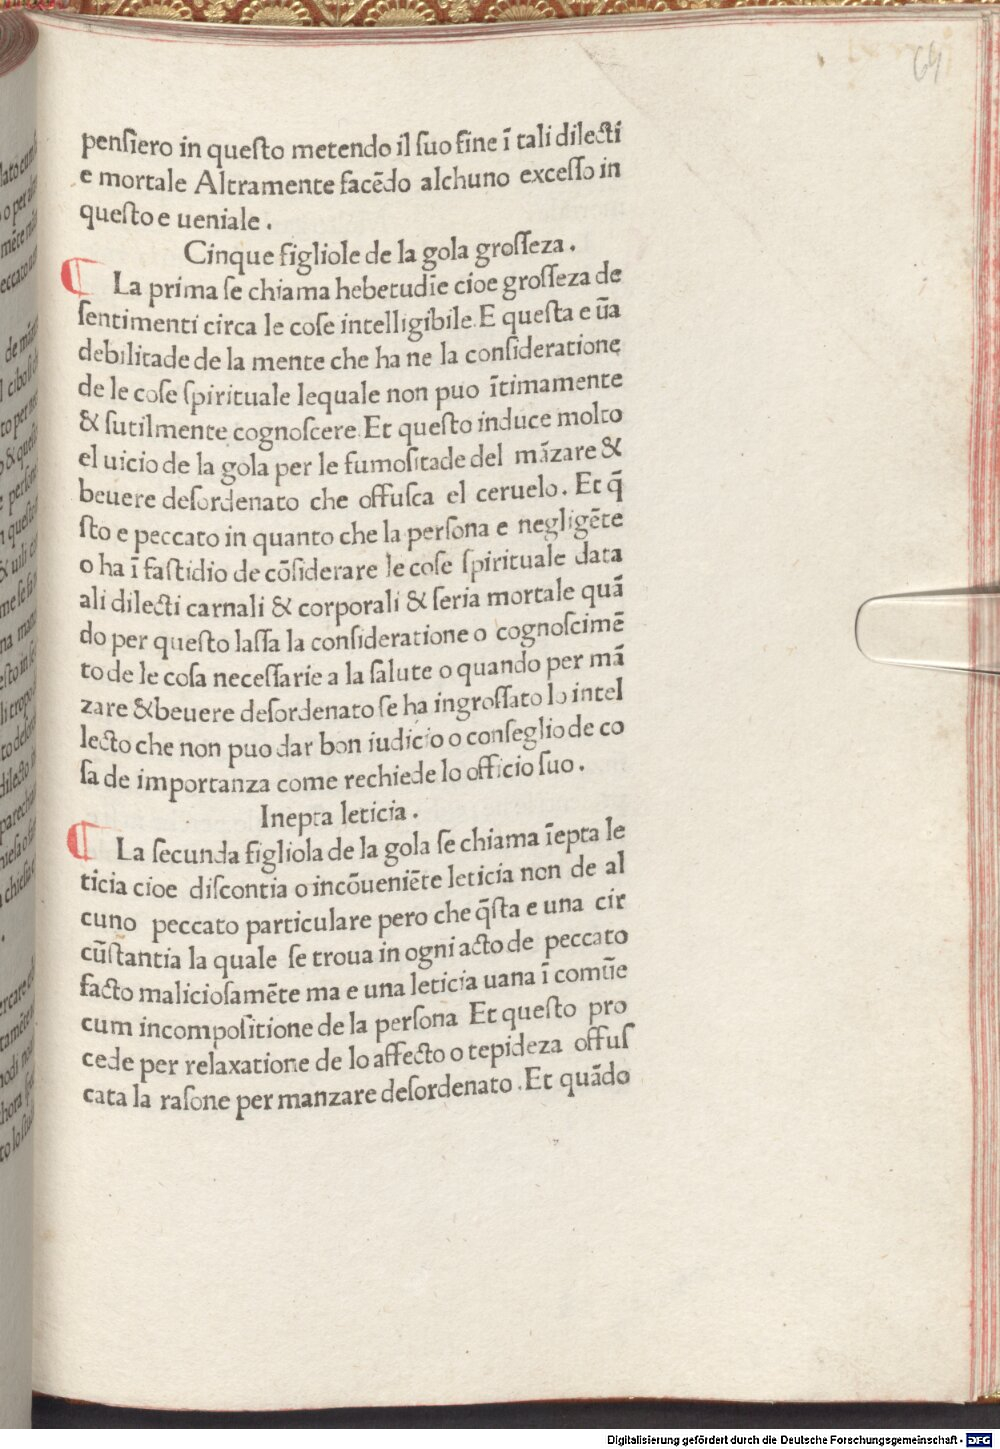 64
penſiero in queſto metendo il ſuo fine ī tali dilecti
e mortale Altramente facēdo alchuno exceſſo in
queſto e ueniale .
Cinque figliole de la gola groſſeza .
La prima ſe chiama hebetudie cioe groſſeza de
ſentimenti circa le coſe intelligibile. E queſta e ūa
debilitade de la mente che ha ne la conſideratione
de le coſe ſpirituale lequale non puo ītimamente
& ſutilmente cognoſcere. Et queſto induce molto
el uicio de la gola per le fumoſitade del māzare &
beuere deſordenato che offuſca el ceruelo . Et q̄
ſto e peccato in quanto che la perſona e negligēte
o ha ī faſtidio de cōſiderare le coſe ſpirituale data
ali dilecti carnali & corporali & ſeria mortale quā
do per queſto laſſa la conſideratione o cognoſcimē
to de le coſa neceſſarie a la ſalute o quando per mā
zare & beuere deſordenato ſe ha ingroſſato lo intel
lecto che non puo dar bon iudicio o conſeglio de co
ſa de importanza come rechiede lo officio ſuo .
Inepta leticia .
La ſecunda figliola de la gola ſe chiama īepta le
ticia cioe diſcontia o incōueniēte leticia non de al
cuno peccato particulare pero che q̄ſta e una cir
cūſtantia la quale ſe troua in ogni acto de peccato
facto malicioſamēte ma e una leticia uana ī comūe
cum incompoſitione de la perſona Et queſto pro
cede per relaxatione de lo affecto o tepideza offuſ
cata la raſone per manzare deſordenato . Et quādo
Digitalisierung gefördert durch die Deutsche Forschungsgemeinschaft - DFG